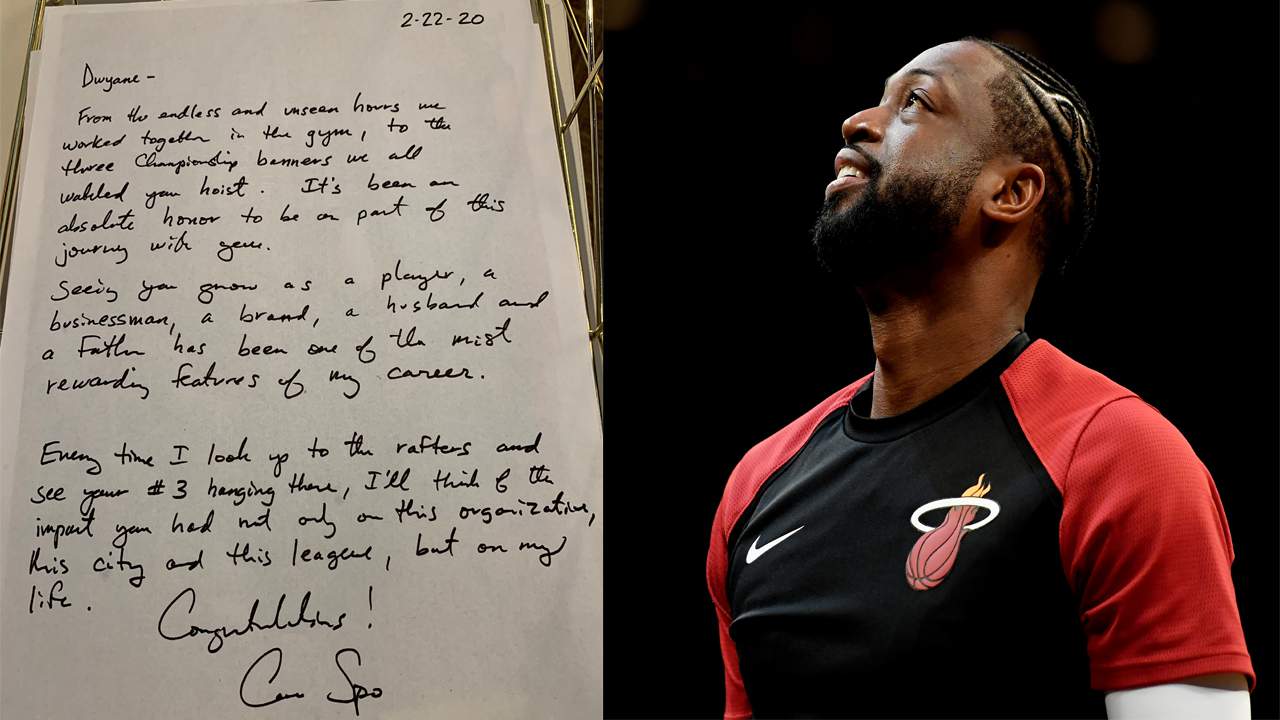 2-22-20
Dwyane -
From the endless and unseen hours we
worked together in the gym, to the
three Championship banners we all
watched you hoist. It's been an
absolute honor to be a part of this
journey with you.
Seeing you grow as a player, a
businessman, a brand, a husband and
a Father has been one of the most
rewarding features of my career.
Every time I look up to the rafters and
see your #3 hanging there, I'll think of the
impact you had not only on this organization,
this city and this league, but on my
life.
Congratulations!
Coach Spo